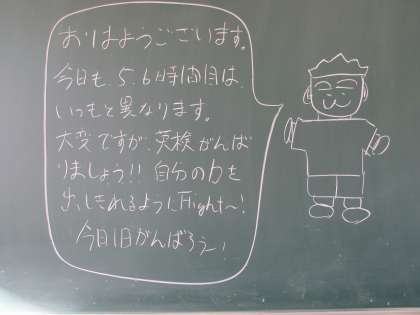 おはようございます。
今日も、5、6時間目は、
いつもと異なります。
大変ですが、英検がんば
りましょう!! 自分の力を
出しきれるようにFight〜!
今日1日がんばろう〜!